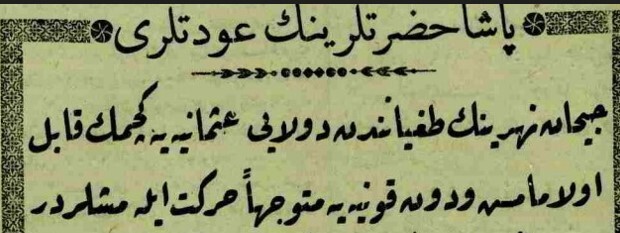 پاشا حضرتلرینك عودتلری
جیحان نهرینك طغیانندن دولایی عثمانیه یه كچمك قابل
اولامامس ودون قونیه یه متوجهاً حركت ایله مشلردر